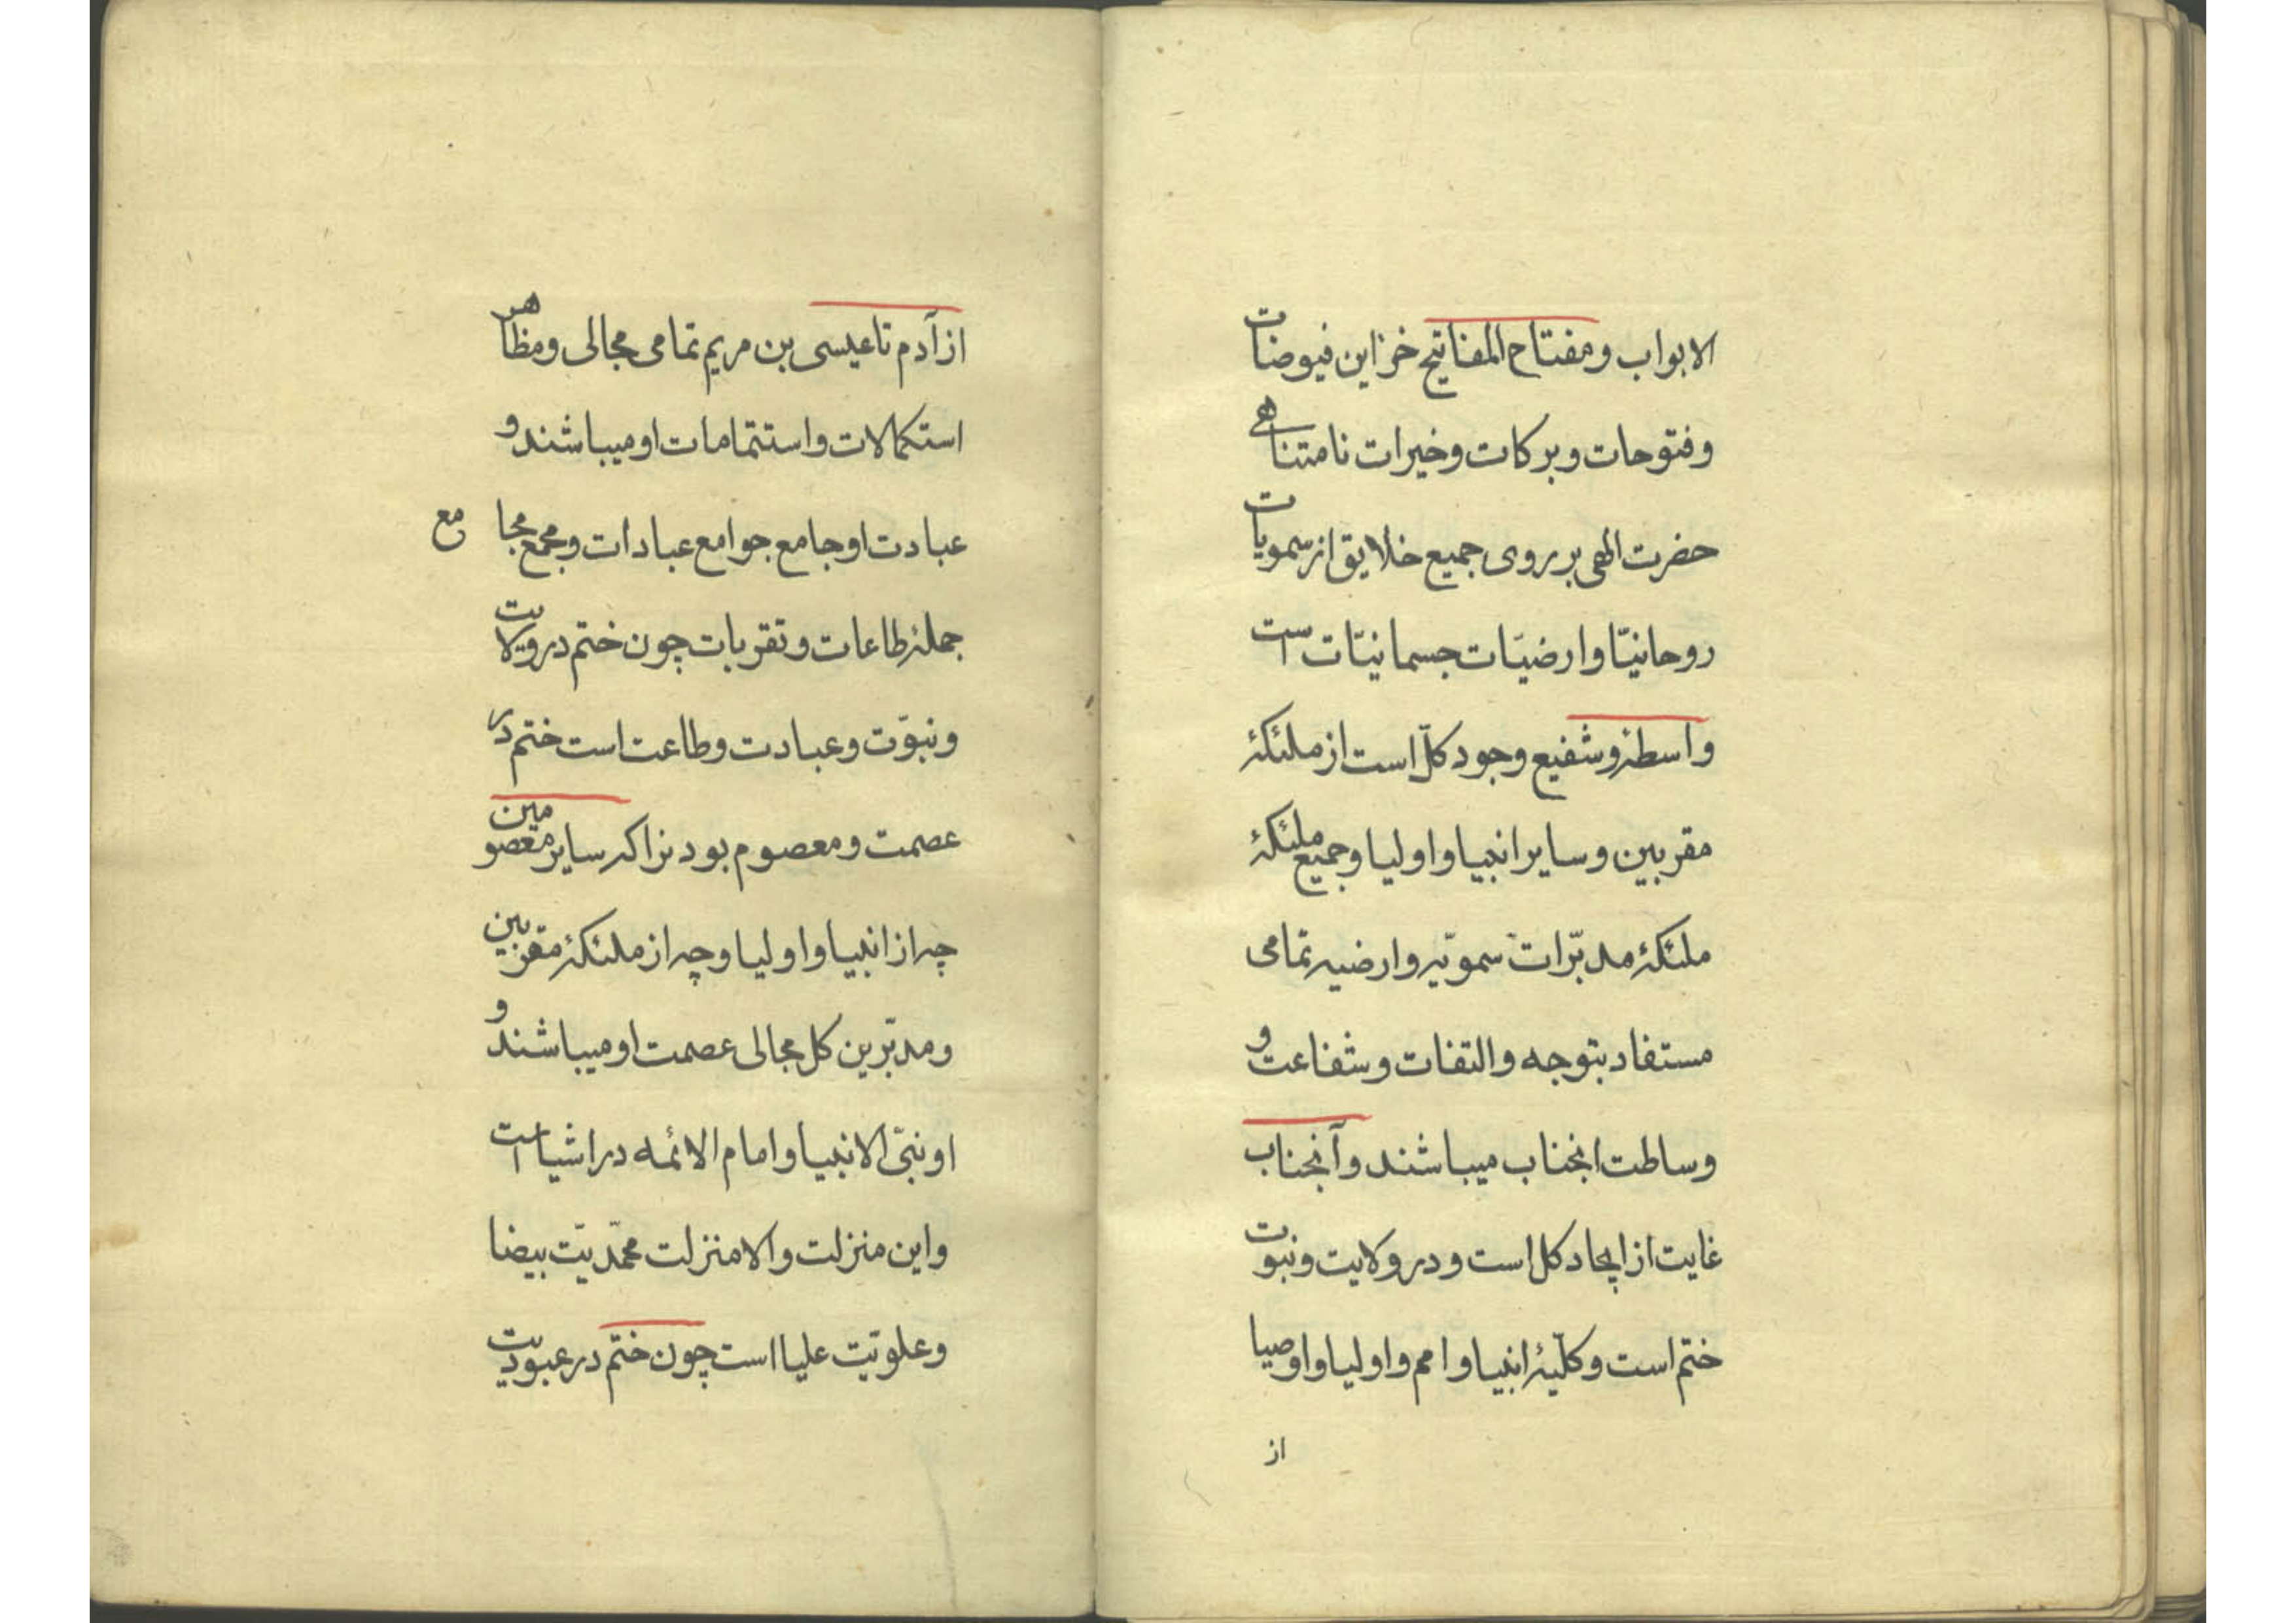 الابواب ومفتاح المفاتیح خزاین فیوضات
وفتوحات وبرکات وخیرات نامتناهی
حضرت الهی بر روی جمیع خلایق از سمویات
روحانیّا وارضیّات جسمانیّات است
واسطهٔ وشفیع وجود کلّ است از ملئکهٔ
مقربین وسایر انبیا و اولیا وجمیع ملئکهٔ
ملئکهٔ مدبّرات سمویّه وارضیه تمامی
مستفاد بتوجه والتفات وشفاعت و
وساطت انجناب میباشند وآنجناب
غایت از ایجاد کل است ودر ولایت ونبوت
ختم است وکلّیهٔ انبیا و امم و اولیا و اوصیا
از
از آدم تا عیسی بن مریم تمامی مجالی ومظاهر
استکمالات واستتمامات او میباشند و
عبادت او جامع جوامع عبادات ومجمع مجامع
جملهٔ طاعات وتقربات چون ختم در ولایت
ونبوّت وعبادت وطاعت است ختم در
عصمت ومعصوم بود نزاکه سایر معصومین
چه از انبیا و اولیا وچه از ملئکهٔ مقربین
ومدبّرین کل مجالی عصمت او میباشند و
او نبیّ الانبیا و امام الائمه در اشیا است
واین منزلت والا منزلت محمّدیّت بیضا
وعلویّت علیا است چون ختم در عبودیت